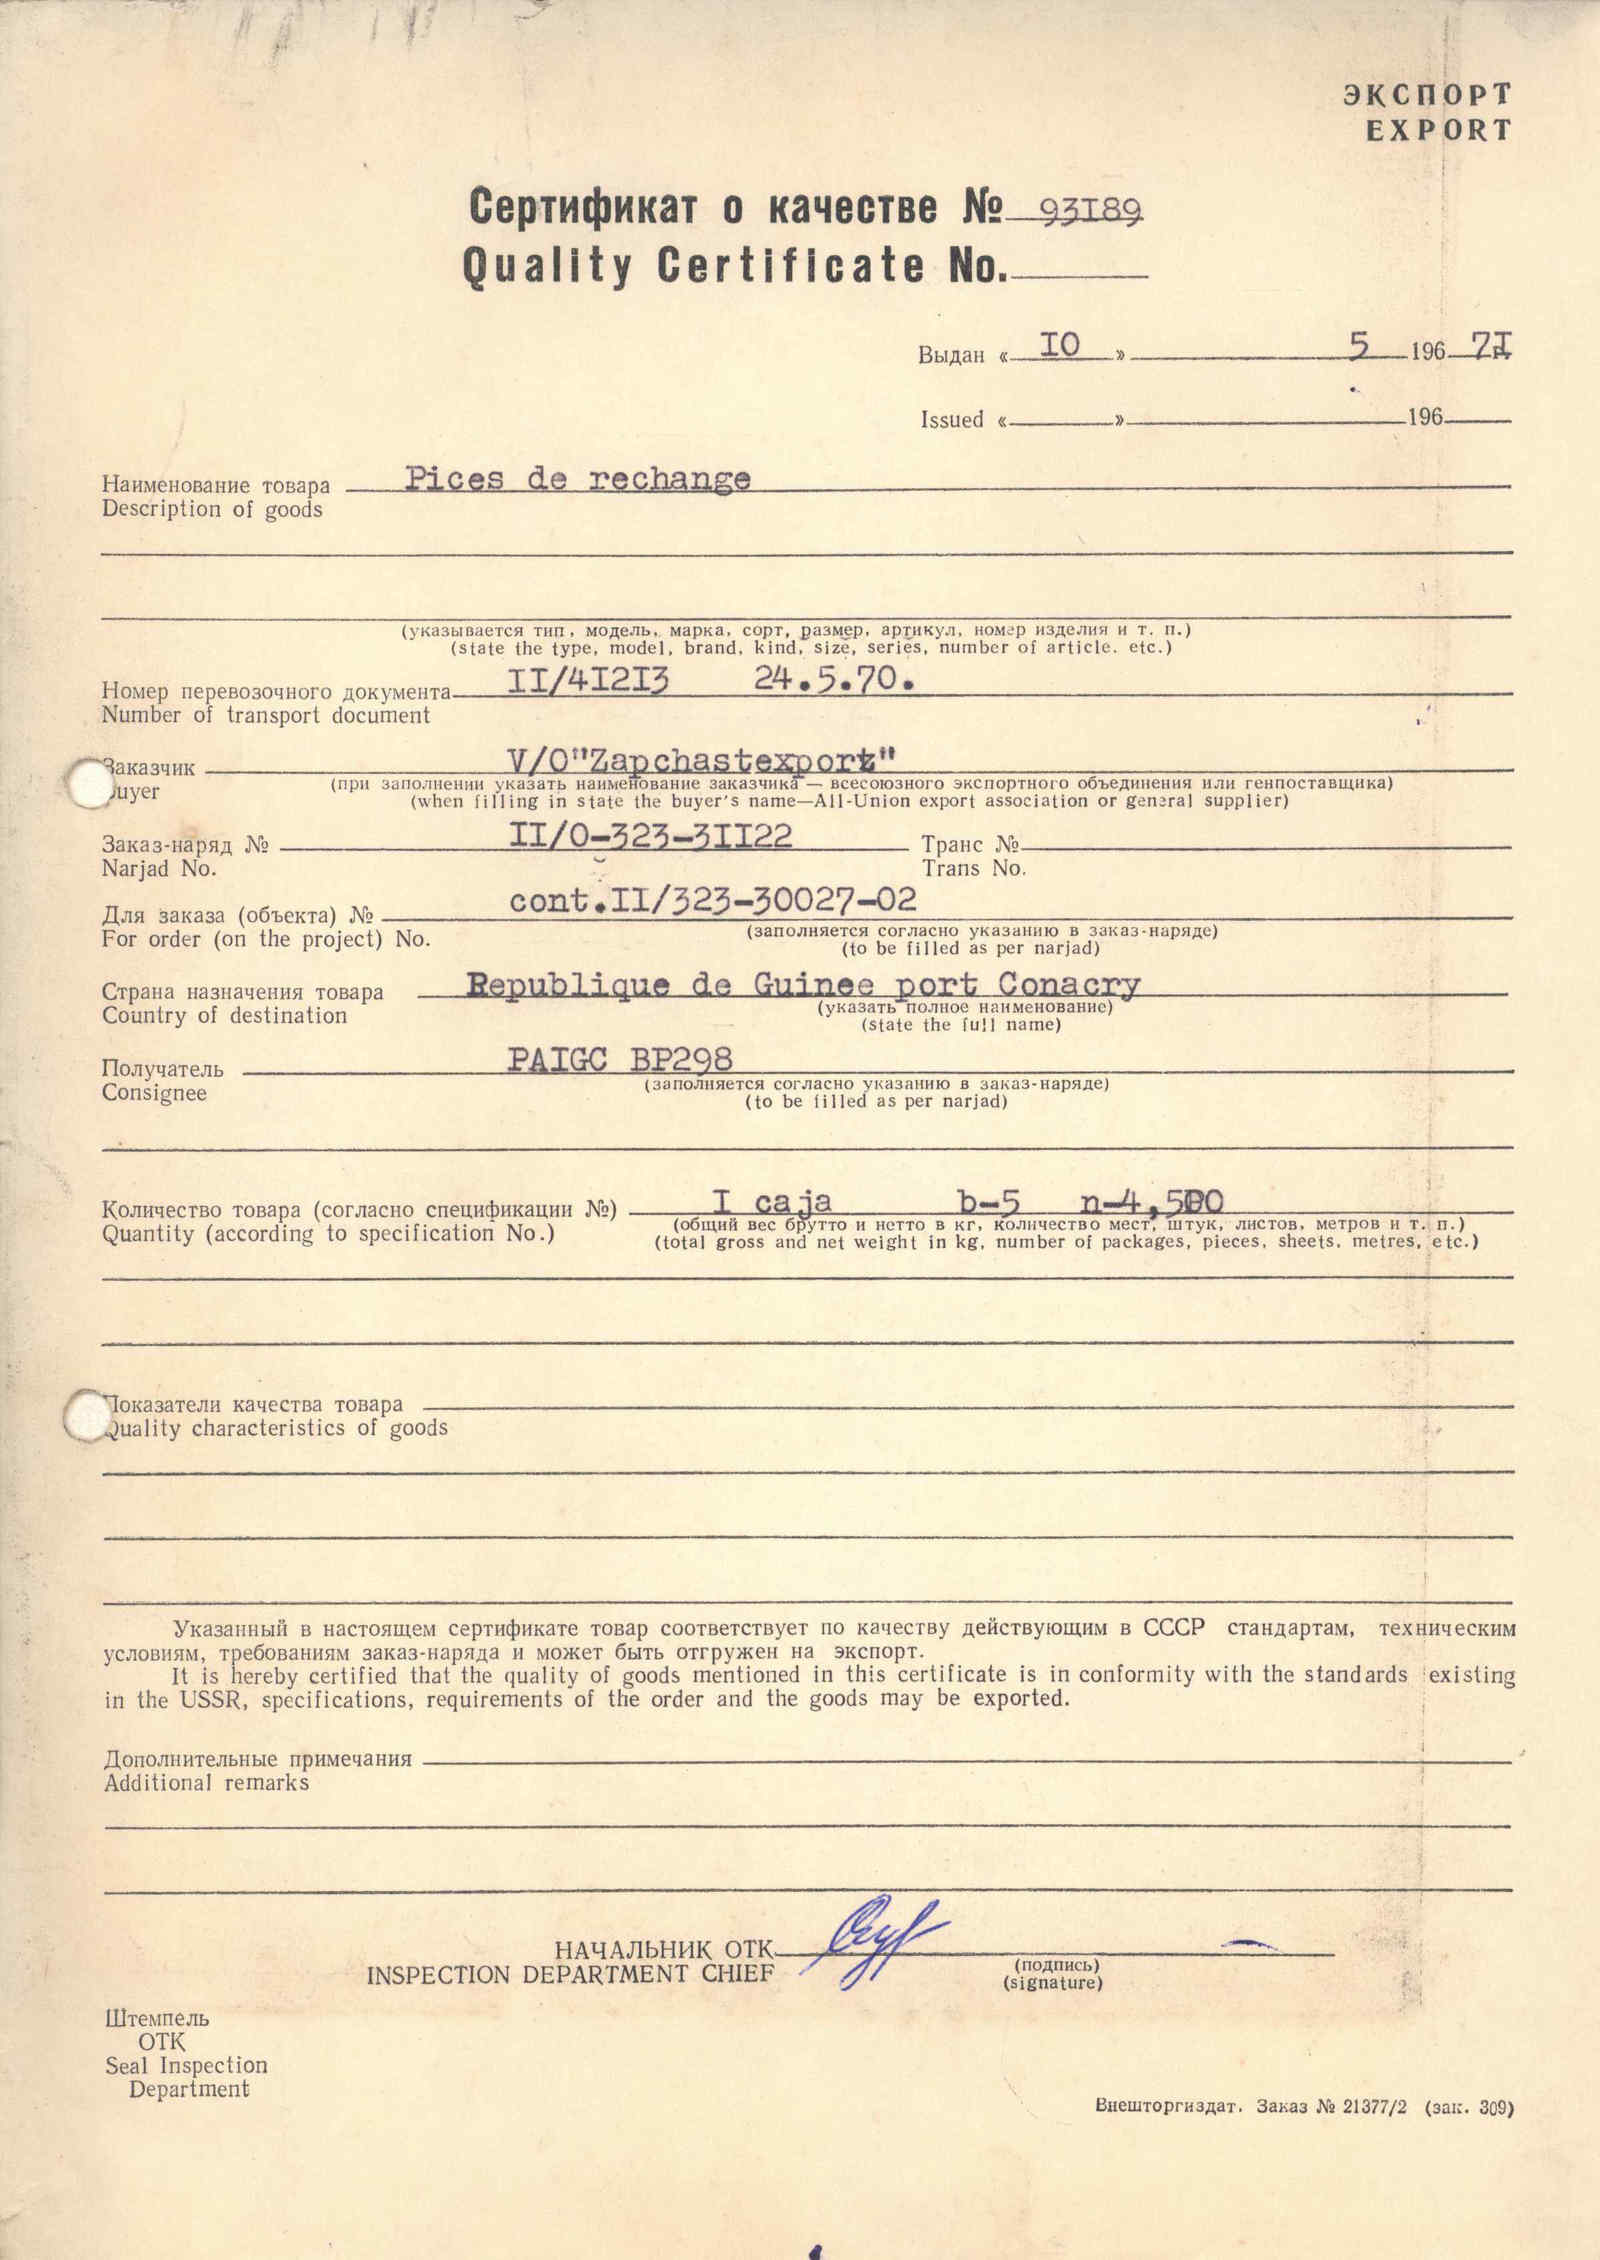 ЭКСПОРТ
EXPORT
Сертификат о качестве № 93I89
Quality Certificate No.
Выдан « IO » 5 196 7I
Issued « » 196
Наименование товара Pices de rechange
Description of goods
(указывается тип, модель, марка, сорт, размер, артикул, номер изделия и т. п.)
(state the type, model, brand, kind, size, series, number of article. etc.)
Номер перевозочного документа II/4I2I3 24.5.70.
Number of transport document
Заказчик V/O"Zapchastexport"
Buyer
(при заполнении указать наименование заказчика — всесоюзного экспортного объединения или генпоставщика)
(when filling in state the buyer's name—All-Union export association or general supplier)
Заказ-наряд № II/0-323-3II22 Транс №
Narjad No. Trans No.
Для заказа (объекта) № cont.II/323-30027-02
For order (on the project) No.
(заполняется согласно указанию в заказ-наряде)
(to be filled as per narjad)
Страна назначения товара Republique de Guinee port Conacry
Country of destination
(указать полное наименование)
(state the full name)
Получатель PAIGC BP298
Consignee
(заполняется согласно указанию в заказ-наряде)
(to be filled as per narjad)
Количество товара (согласно спецификации №) I caja b-5 n-4,500
Quantity (according to specification No.)
(общий вес брутто и нетто в кг, количество мест, штук, листов, метров и т. п.)
(total gross and net weight in kg, number of packages, pieces, sheets, metres, etc.)
Показатели качества товара
Quality characteristics of goods
Указанный в настоящем сертификате товар соответствует по качеству действующим в СССР стандартам, техническим
условиям, требованиям заказ-наряда и может быть отгружен на экспорт.
It is hereby certified that the quality of goods mentioned in this certificate is in conformity with the standards existing
in the USSR, specifications, requirements of the order and the goods may be exported.
Дополнительные примечания
Additional remarks
НАЧАЛЬНИК ОТК
INSPECTION DEPARTMENT CHIEF
(подпись)
(signature)
Штемпель
ОТК
Seal Inspection
Department
Внешторгиздат. Заказ № 21377/2 (зак. 309)